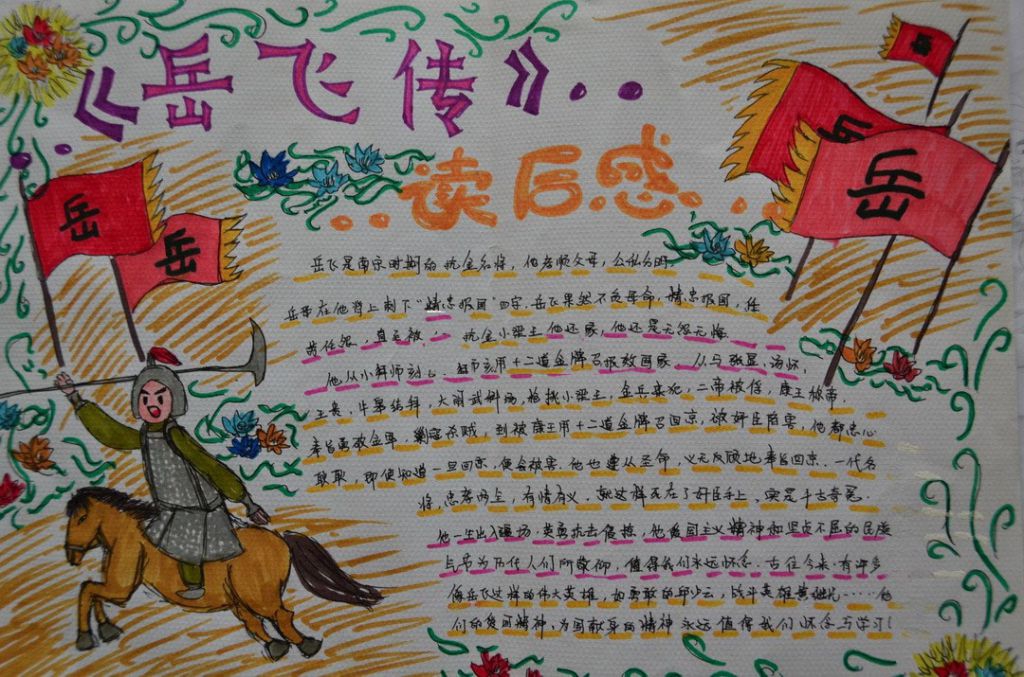 《岳飞传》
读后感
岳
岳
岳
岳
岳
岳飞是南宋时期的抗金名将，他孝顺父母，公私分明。
岳母在他背上刺下“精忠报国”四字.岳飞果然不负母命，精忠报国，任
劳任怨，直至被 抗金小梁王他还家，他还是无怨无悔
他从小拜师 十二道金牌召 回家 从与张显、汤怀、
王贵、牛皋结拜，大闹武科场，枪挑小梁王，金兵来犯，二帝被俘，康王称帝，
奉旨勇敌金军，剿寇杀贼，到被康王用十二道金牌召回京，被奸臣陷害，他都忠心
耿耿，即使知道一旦回京，便会被害.他也遵从圣命，义无反顾地奉旨回京.一代名
将，忠孝两全，有情有义.就这样死在了奸臣手上，实是千古奇冤.
他一生出入疆场.英勇抗击侵掠，他爱国主义精神和坚贞不屈的民族
气节为历代人们所敬仰，值得我们永远怀念.古往今来.有许多
像岳飞这样的伟大英雄，如勇敢的邱少云，战斗英雄黄继光……他
们的爱国精神、为国献身的精神永远值得我们怀念与学习！